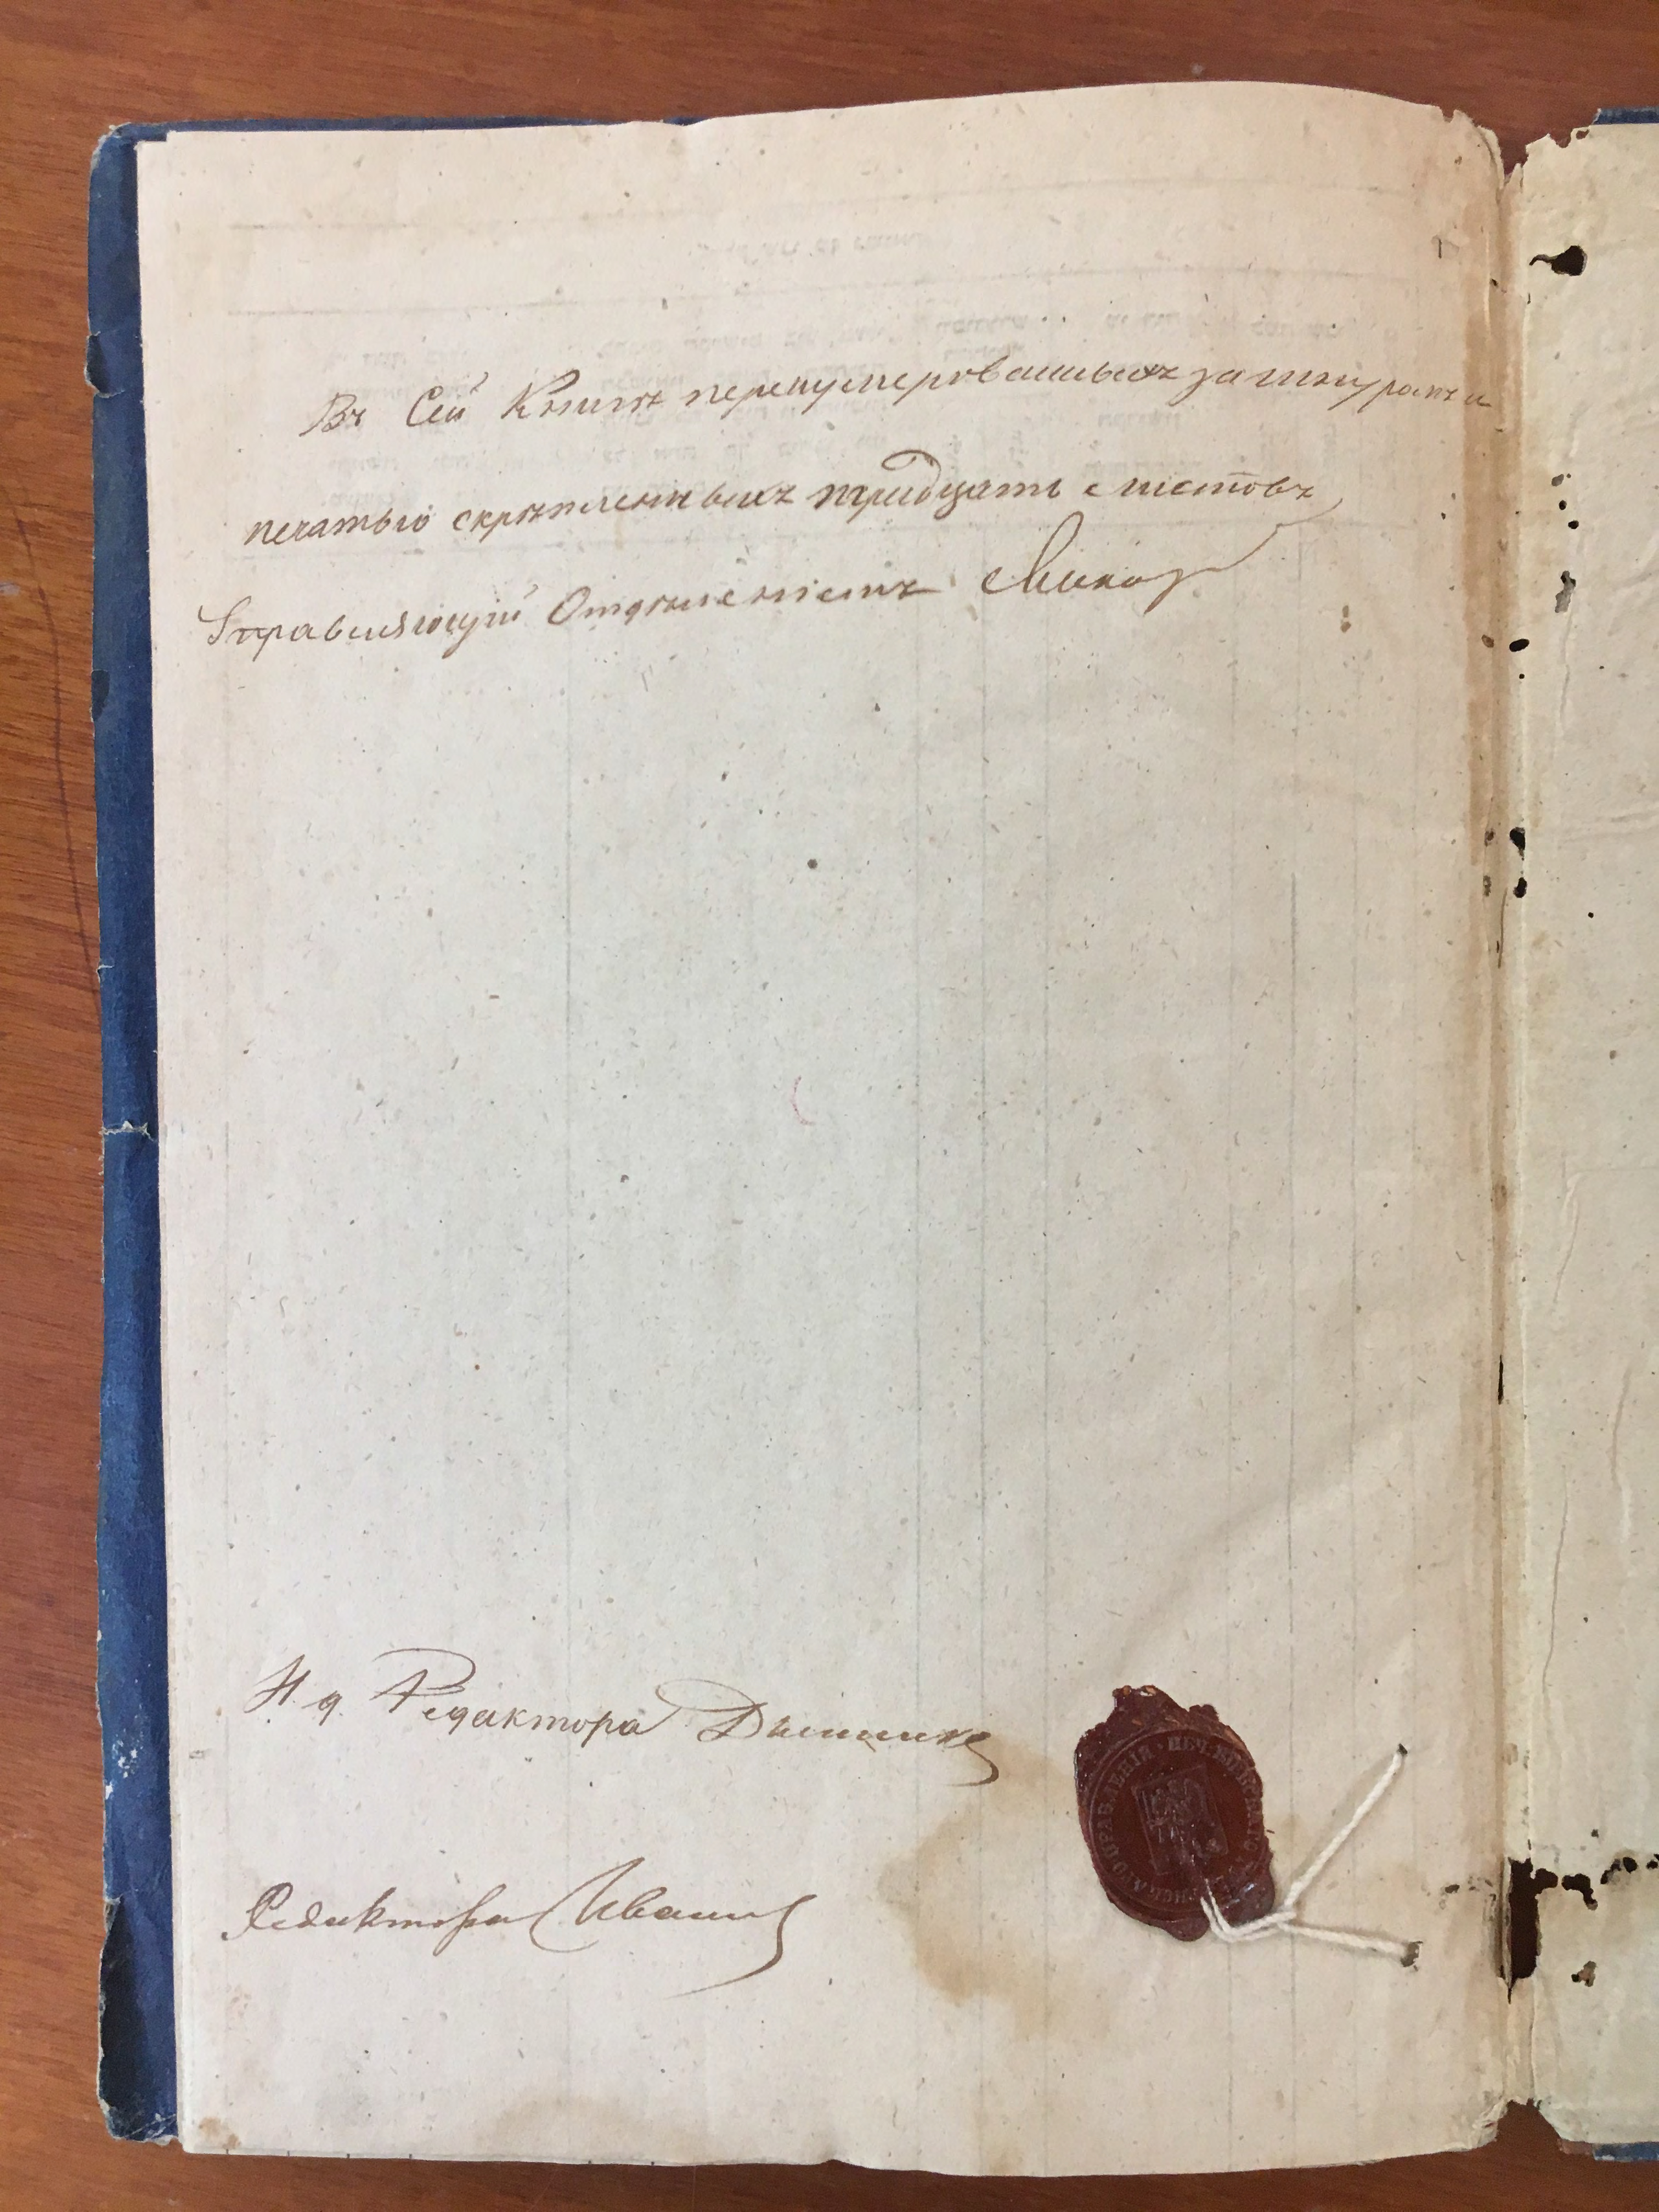 Въ Сей Книгѣ перенумерованныхъ за шнуромъ и
печатью скрѣпленныхъ тридцать листовъ
Управляющій Отдѣленіемъ
И. д. Редактора
Редакторъ